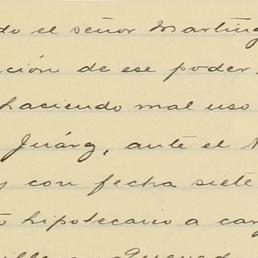 do el señor Martín
ción de ese poder
haciendo mal uso
Juárez, ante el
y con fecha siete
hipotecario a car